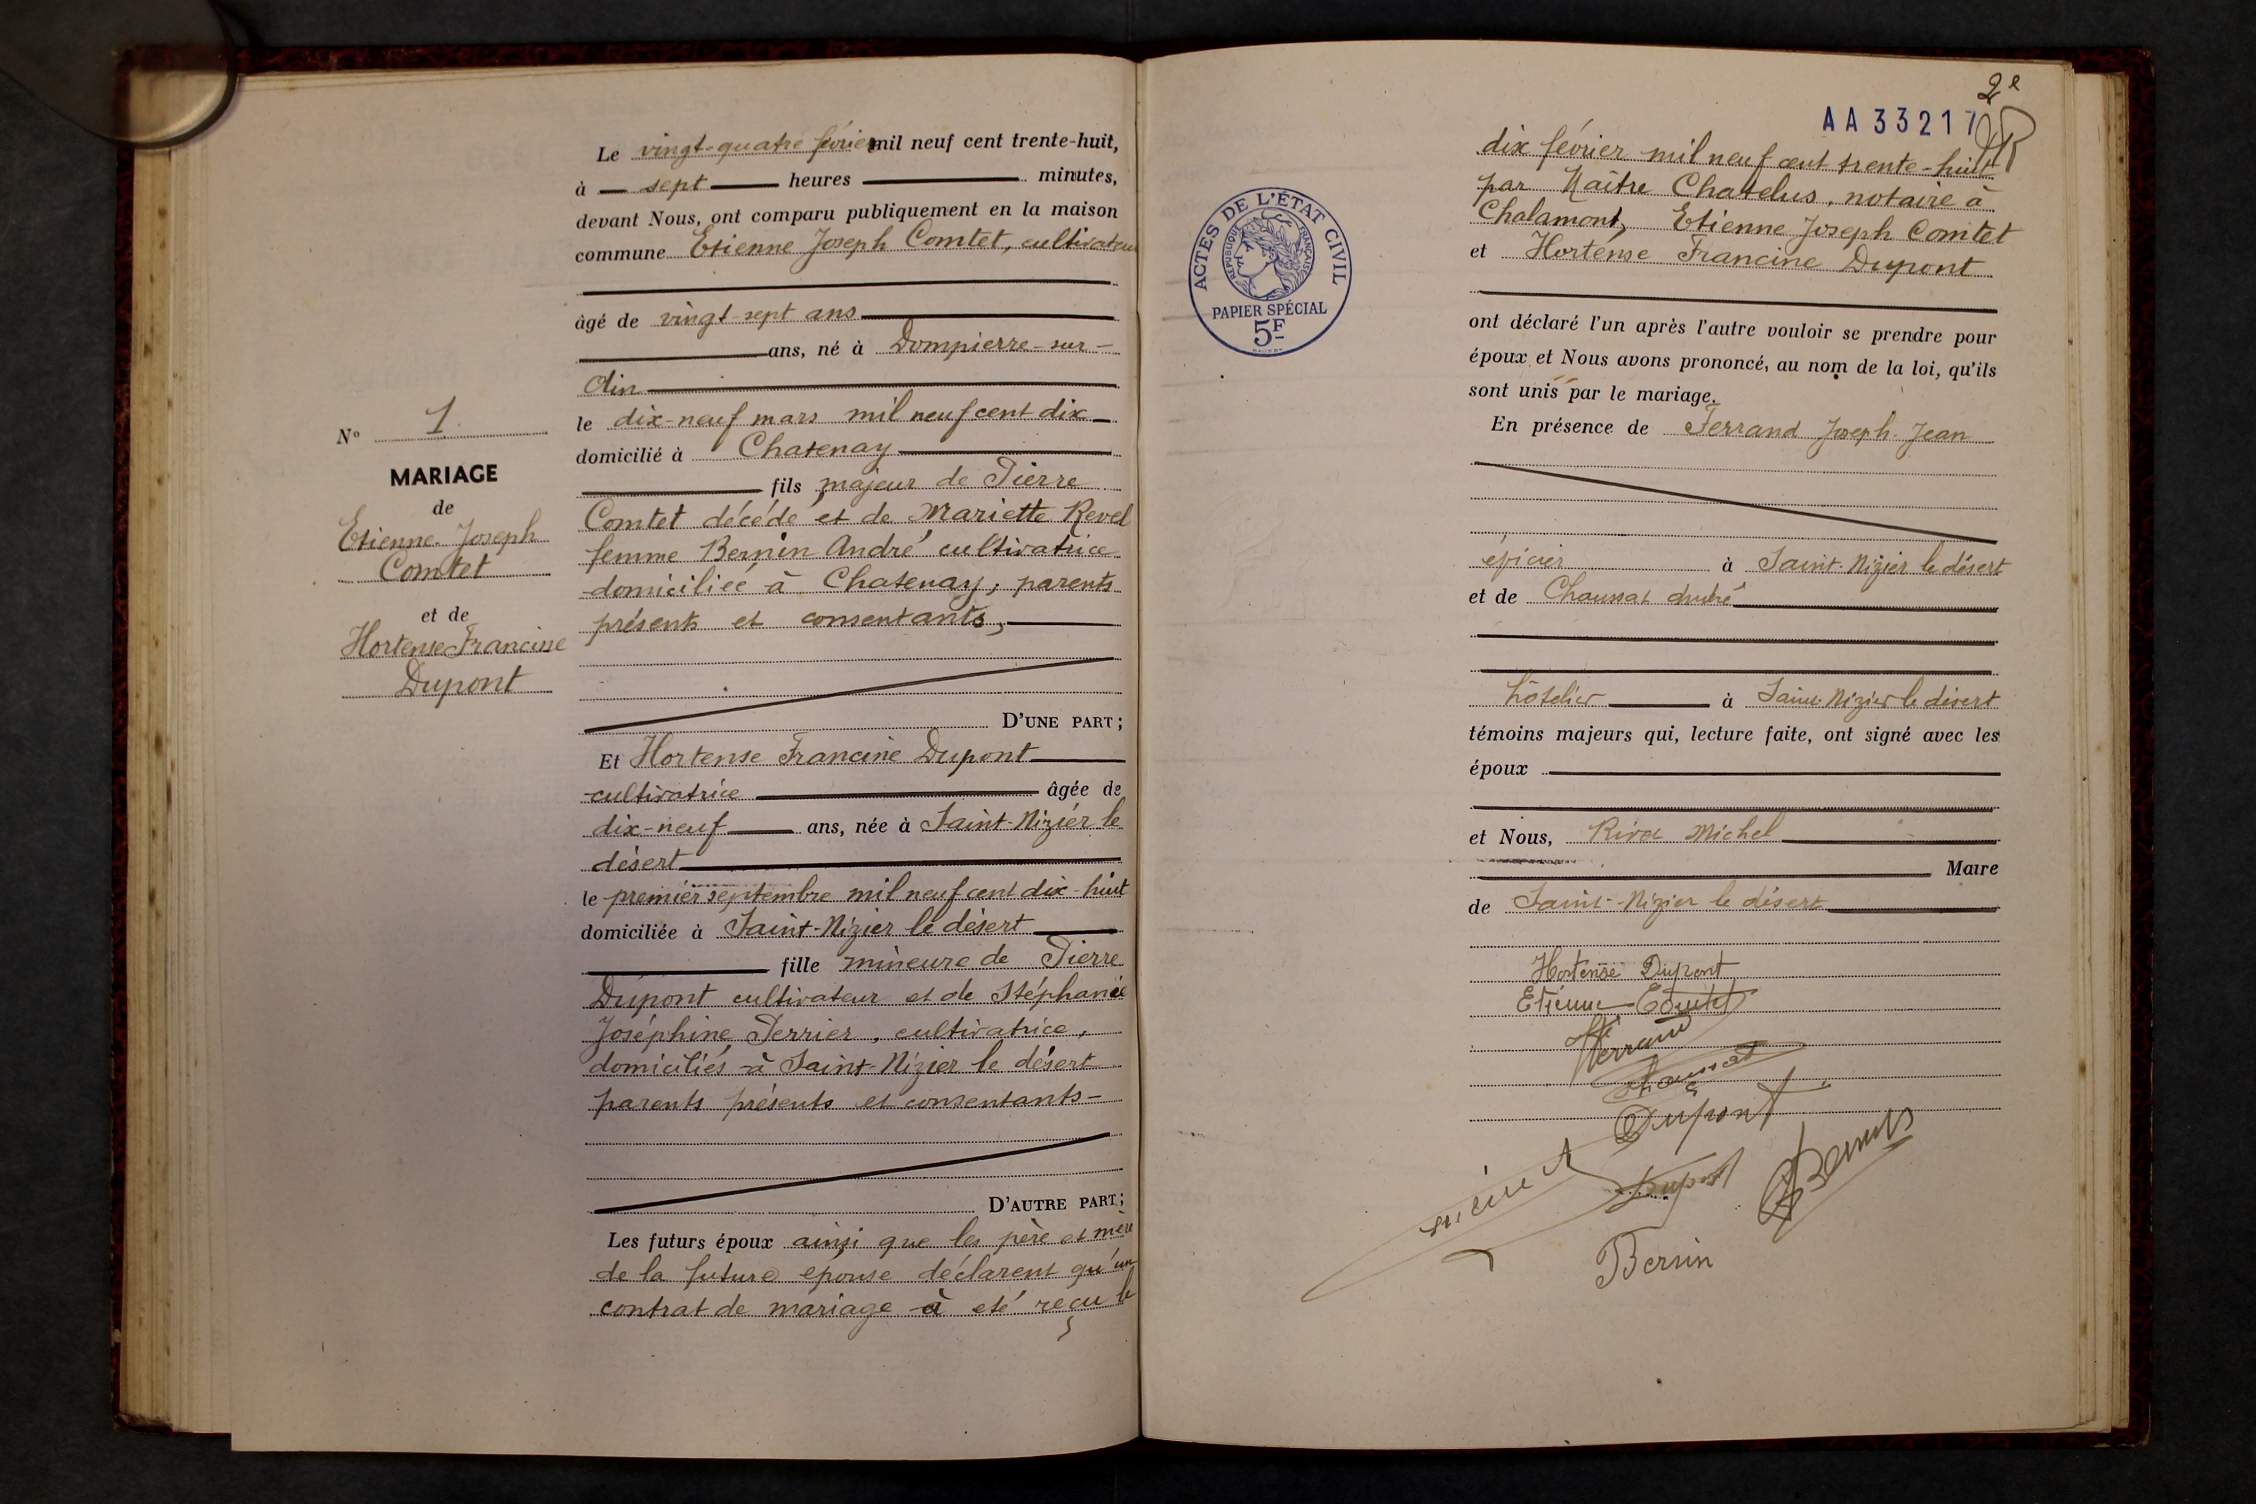 Le vingt-quatre février mil neuf cent trente-huit,
à sept heures minutes,
devant Nous, ont comparu publiquement en la maison
commune Etienne Joseph Comtet, cultivateur
âgé de vingt-sept ans
ans, né à Dompierre-sur-
Ain
le dix-neuf mars mil neuf cent dix
domicilié à Chatenay
fils majeur de Pierre
Comtet décédé et de Mariette Revel
femme Bernin André cultivatrice
domiciliée à Chatenay; parents
présents et consentants,
D'UNE PART;
Nº 1
MARIAGE
de
Etienne Joseph
Comtet
et de
Hortense Francine
Dupont
Et Hortense Francine Dupont
cultivatrice âgée de
dix-neuf ans, née à Saint-Nizier le
désert
le premier septembre mil neuf cent dix-huit
domiciliée à Saint-Nizier le désert
fille mineure de Pierre
Dupont cultivateur et de Stéphanie
Joséphine Perrier, cultivatrice,
domiciliés à Saint-Nizier le désert
parents présents et consentants-
D'AUTRE PART;
Les futurs époux ainsi que les père et mère
de la future épouse déclarent qu'un
contrat de mariage a été reçu le
2e
AA33217
ACTES DE L'ÉTAT CIVIL
RÉPUBLIQUE FRANÇAISE
PAPIER SPÉCIAL
5F
dix février mil neuf cent trente-huit
par Maître Chatelus, notaire à
Chalamont, Etienne Joseph Comtet
et Hortense Francine Dupont
ont déclaré l'un après l'autre vouloir se prendre pour
époux et Nous avons prononcé, au nom de la loi, qu'ils
sont unis par le mariage.
En présence de Ferrand Joseph Jean
épicier à Saint-Nizier le désert
et de Chaussat André
hôtelier à Saint-Nizier le désert
témoins majeurs qui, lecture faite, ont signé avec les
époux
et Nous, Rivet Michel
Maire
de Saint-Nizier le désert
Hortense Dupont
Etienne Comtet
Ferrand
Chaussat
Dupont
Dupont
Bernin